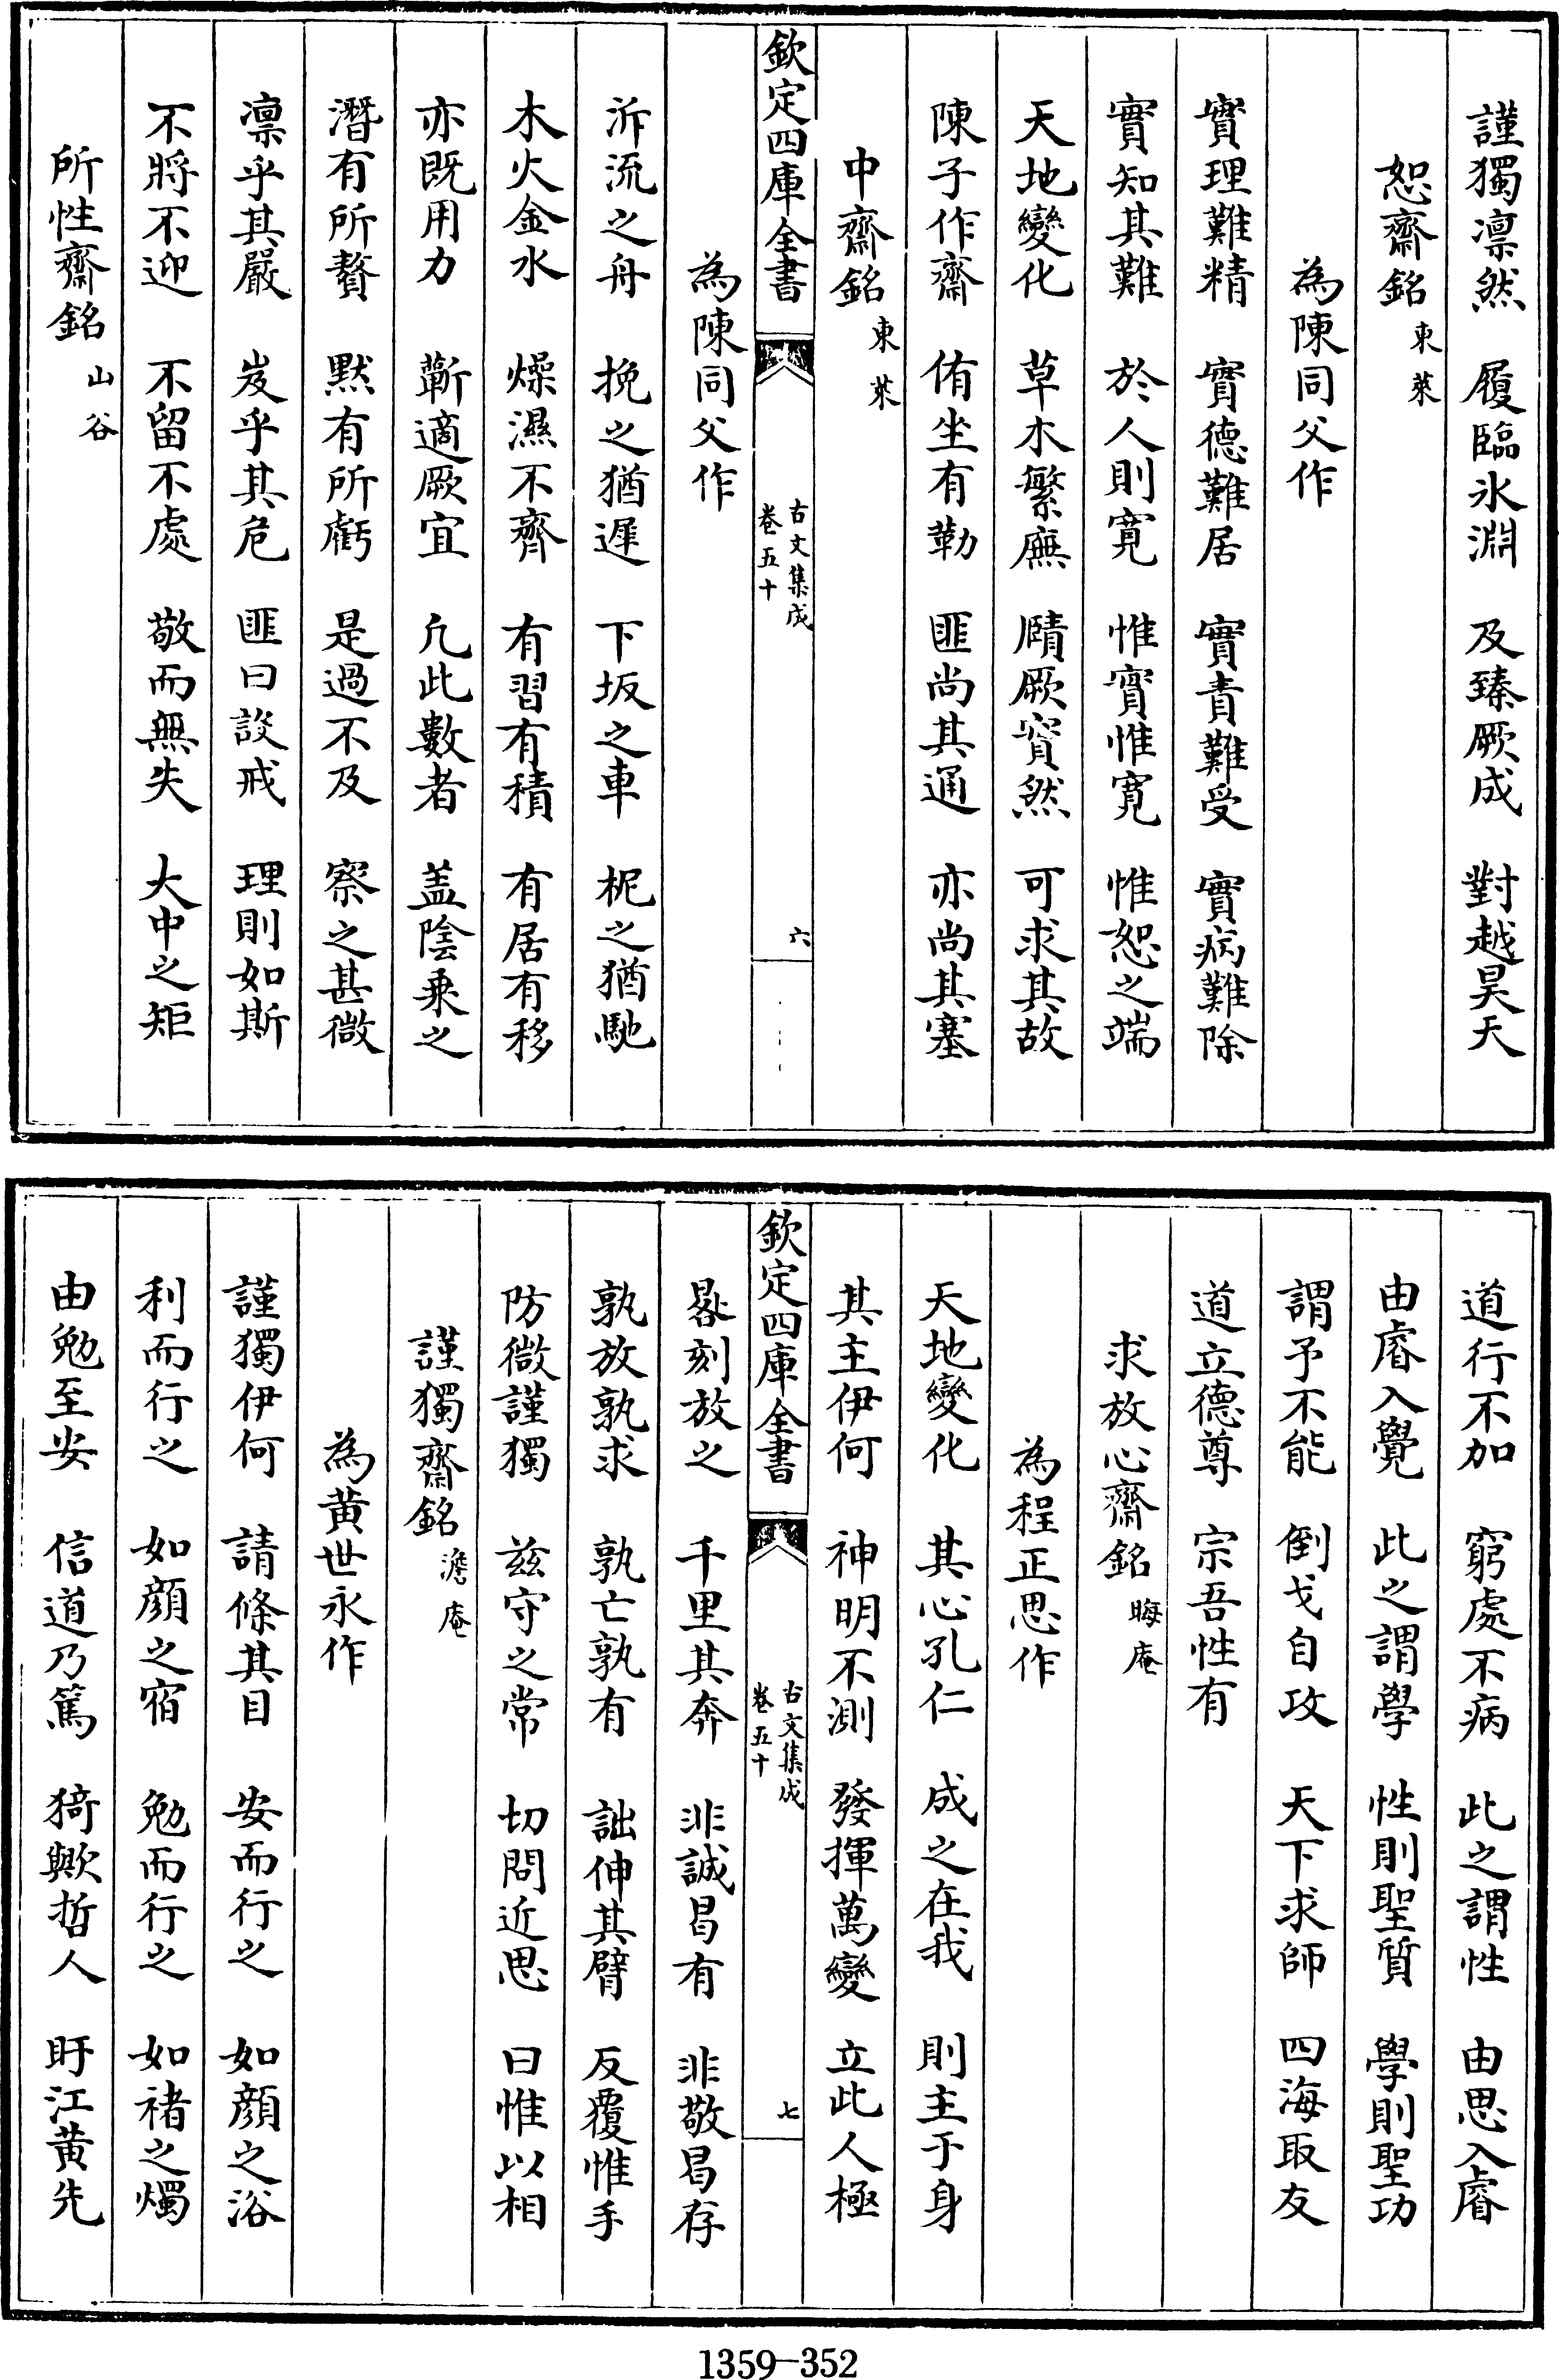 謹獨凛然　履臨氷淵　及臻厥成　對越昊天
恕齋銘東萊
為陳同父作
實理難精　實德難居　實責難受　實病難除
實知其難　於人則寛　惟實惟寛　惟恕之端
天地變化　草木繁廡　賾厥實然　可求其故
陳子作齋　侑坐有勒　匪尚其通　亦尚其塞
中齋銘東萊
欽定四庫全書
古文集成
卷五十
六
為陳同父作
泝流之舟　挽之猶遲　下坂之車　柅之猶馳
木火金水　燥濕不齊　有習有積　有居有移
亦既用力　蘄適厥宜　凢此數者　盖陰乘之
潛有所贅　黙有所虧　是過不及　察之甚微
凛乎其嚴　岌乎其危　匪曰談戒　理則如斯
不將不迎　不留不處　敬而無失　大中之矩
所性齋銘山谷
道行不加　窮處不病　此之謂性　由思入睿
由睿入覺　此之謂學　性則聖質　學則聖功
謂予不能　倒戈自攻　天下求師　四海取友
道立德尊　宗吾性有
求放心齋銘晦庵
為程正思作
天地變化　其心孔仁　成之在我　則主于身
其主伊何　神明不測　發揮萬變　立此人極
欽定四庫全書
古文集成
卷五十
七
晷刻放之　千里其奔　非誠曷有　非敬曷存
孰放孰求　孰亡孰有　詘伸其臂　反覆惟手
防微謹獨　兹守之常　切問近思　曰惟以相
謹獨齋銘澹庵
為黄世永作
謹獨伊何　請條其目　安而行之　如顔之浴
利而行之　如顔之宿　勉而行之　如禇之燭
由勉至安　信道乃篤　猗歟哲人　盱江黄先
1359-352